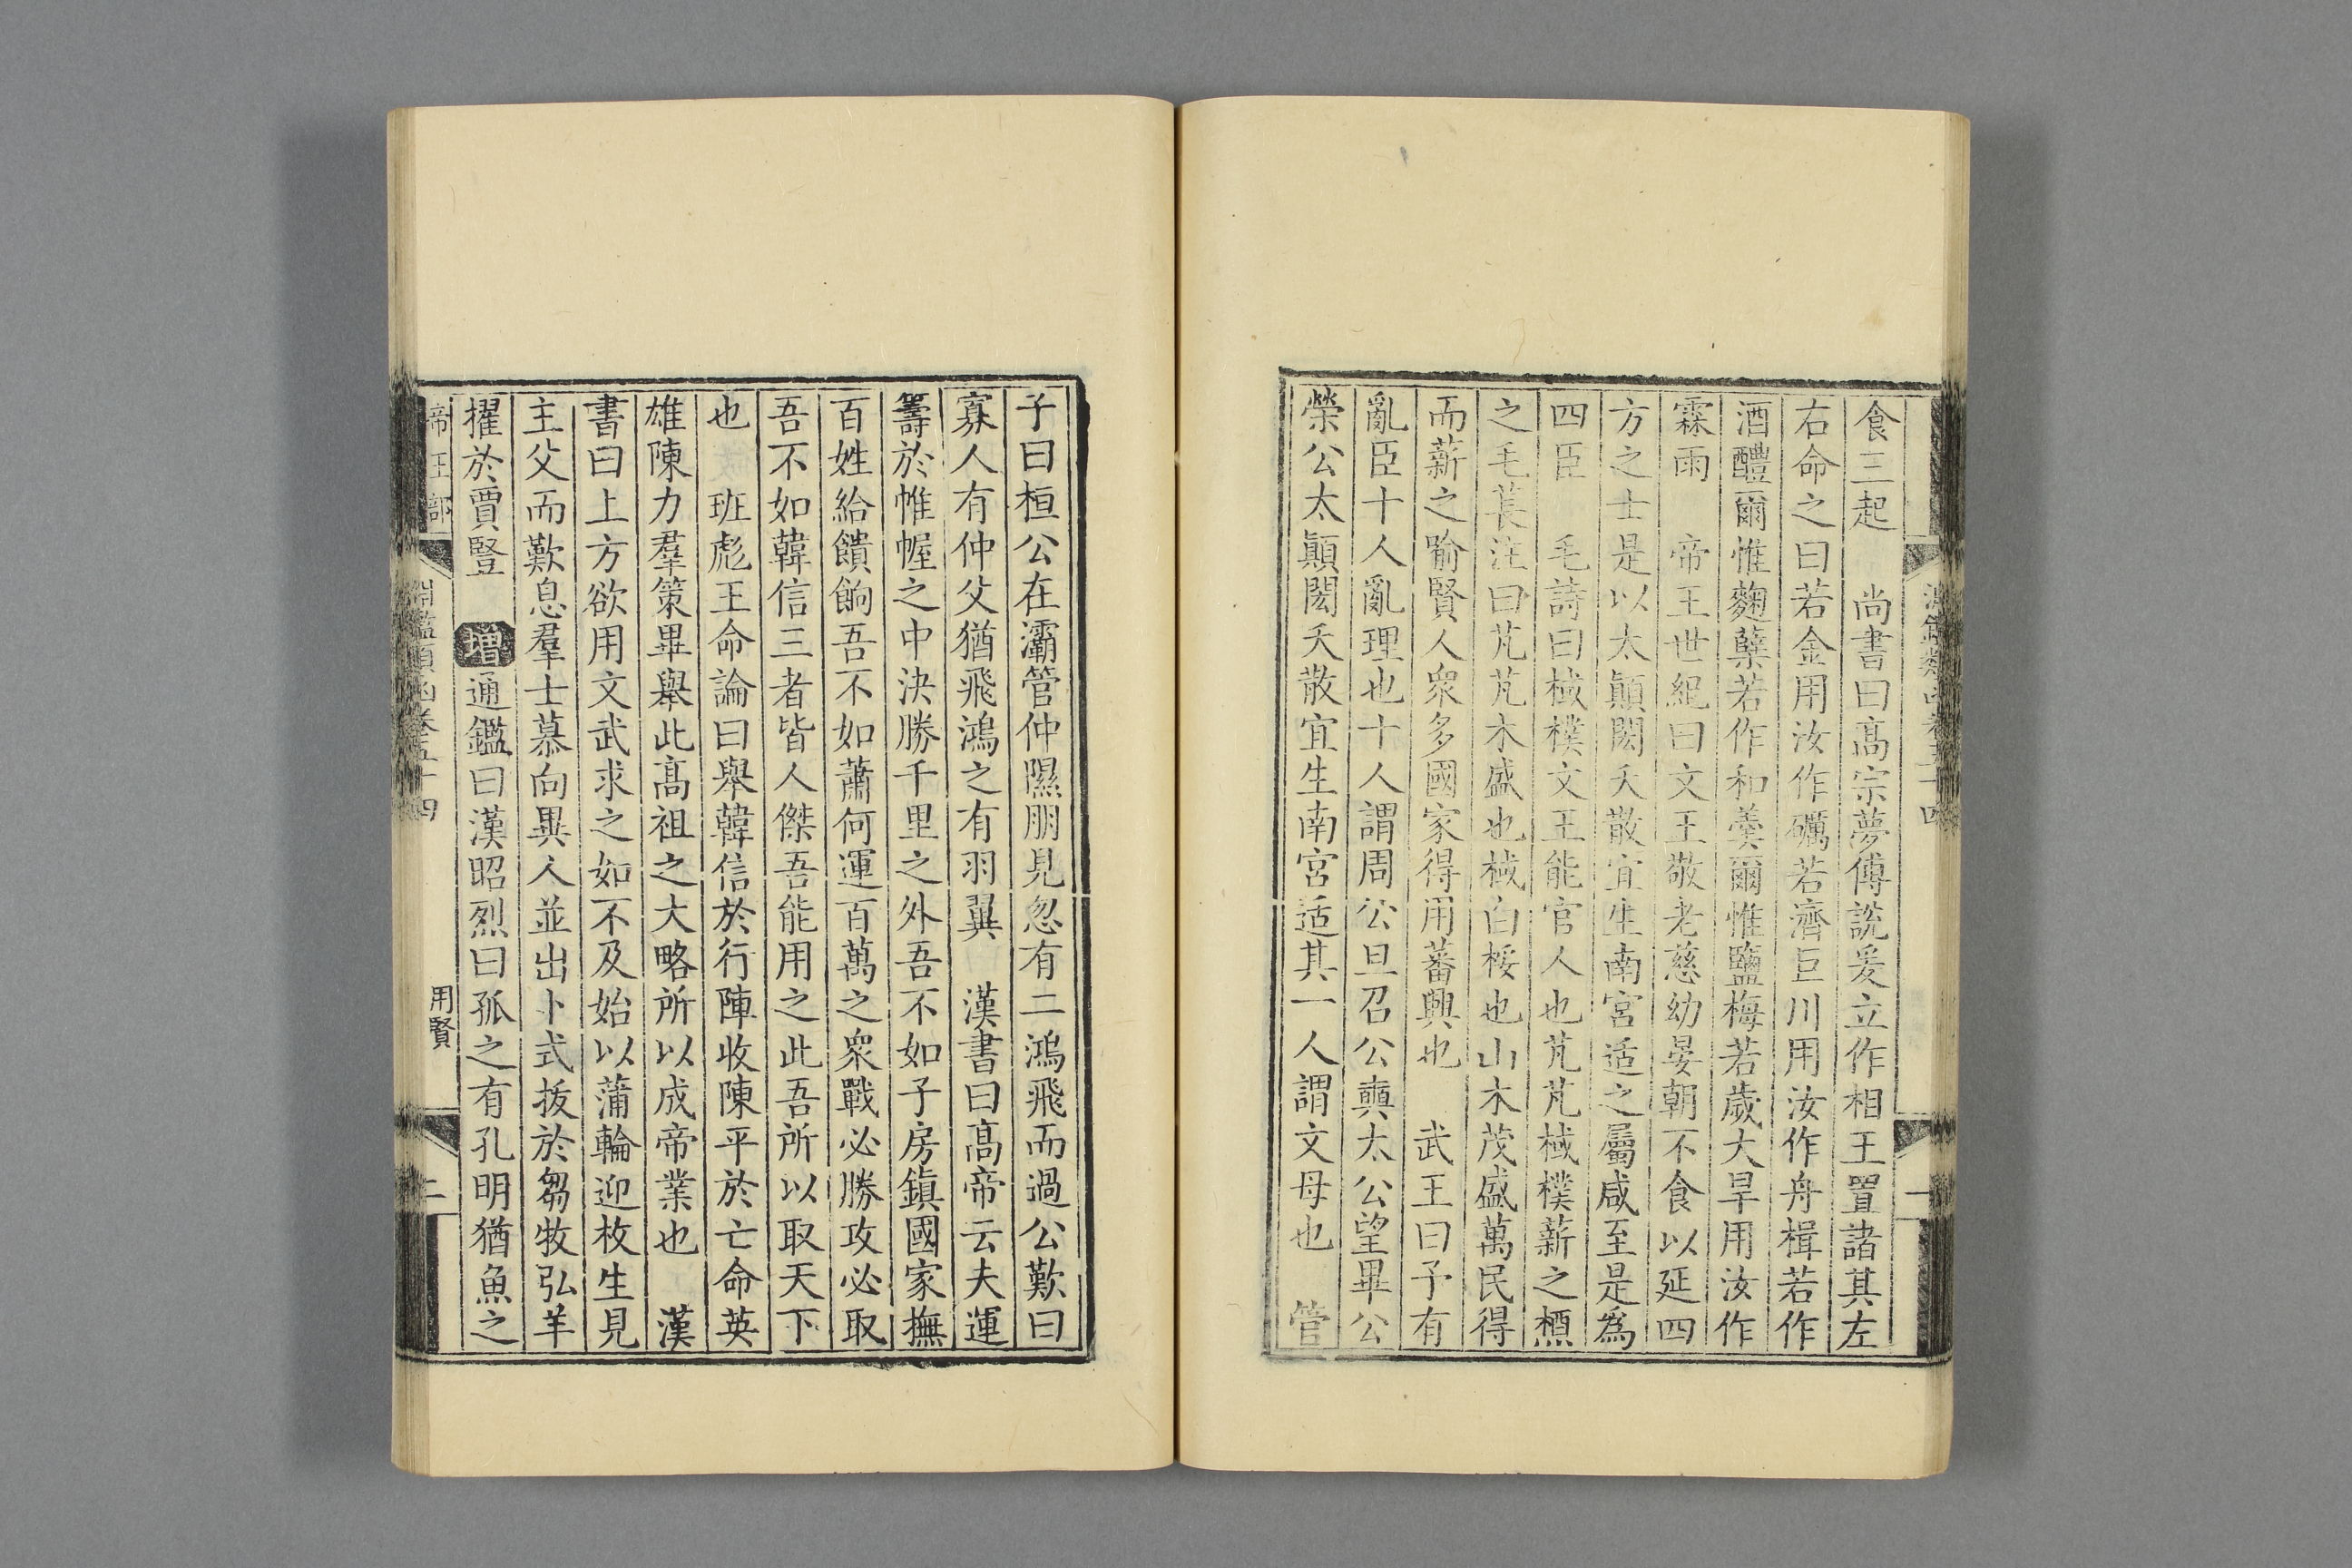 食三起　尚書曰高宗夢傅說爰立作相王置諸其左
右命之曰若金用汝作礪若濟巨川用汝作舟楫若作
酒醴爾惟麴糵若作和羹爾惟鹽梅若歲大旱用汝作
霖雨　帝王世紀曰文王敬老慈幼晏朝不食以延四
方之士是以太顛閎夭散宜生南宮适之屬咸至是爲
四臣　毛詩曰棫樸文王能官人也芃芃棫樸薪之槱
之毛萇注曰芃芃木盛也棫白桵也山木茂盛萬民得
而薪之喻賢人衆多國家得用蕃興也　武王曰予有
亂臣十人亂理也十人謂周公旦召公奭太公望畢公
榮公太顛閎夭散宜生南宮适其一人謂文母也　管
子曰桓公在灞管仲隰朋見忽有二鴻飛而過公歎曰
寡人有仲父猶飛鴻之有羽翼　漢書曰高帝云夫運
籌於帷幄之中決勝千里之外吾不如子房鎮國家撫
百姓給饋餉吾不如蕭何運百萬之衆戰必勝攻必取
吾不如韓信三者皆人傑吾能用之此吾所以取天下
也　班彪王命論曰舉韓信於行陣收陳平於亡命英
雄陳力羣策畢舉此高祖之大略所以成帝業也　漢
書曰上方欲用文武求之如不及始以蒲輪迎枚生見
主父而歎息羣士慕向異人並出卜式拔於芻牧弘羊
擢於賈豎　增通鑑曰漢昭烈曰孤之有孔明猶魚之
帝王部　淵鑑類函卷五十四　用賢　二